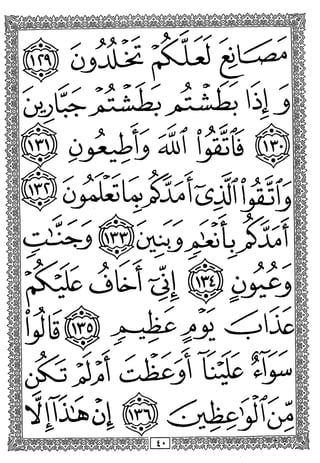 مَصَانِعَ لَعَلَّكُمْ تَخْلُدُونَ ١٢٩
وَإِذَا بَطَشْتُم بَطَشْتُمْ جَبَّارِينَ
١٣٠ فَٱتَّقُوا۟ ٱللَّهَ وَأَطِيعُونِ ١٣١
وَٱتَّقُوا۟ ٱلَّذِىٓ أَمَدَّكُم بِمَا تَعْلَمُونَ ١٣٢
أَمَدَّكُم بِأَنْعَٰمٍ وَبَنِينَ ١٣٣ وَجَنَّٰتٍ
وَعُيُونٍ ١٣٤ إِنِّىٓ أَخَافُ عَلَيْكُمْ
عَذَابَ يَوْمٍ عَظِيمٍ ١٣٥ قَالُوا۟
سَوَآءٌ عَلَيْنَآ أَوَعَظْتَ أَمْ لَمْ تَكُن
مِّنَ ٱلْوَٰعِظِينَ ١٣٦ إِنْ هَٰذَآ إِلَّا
٤٠